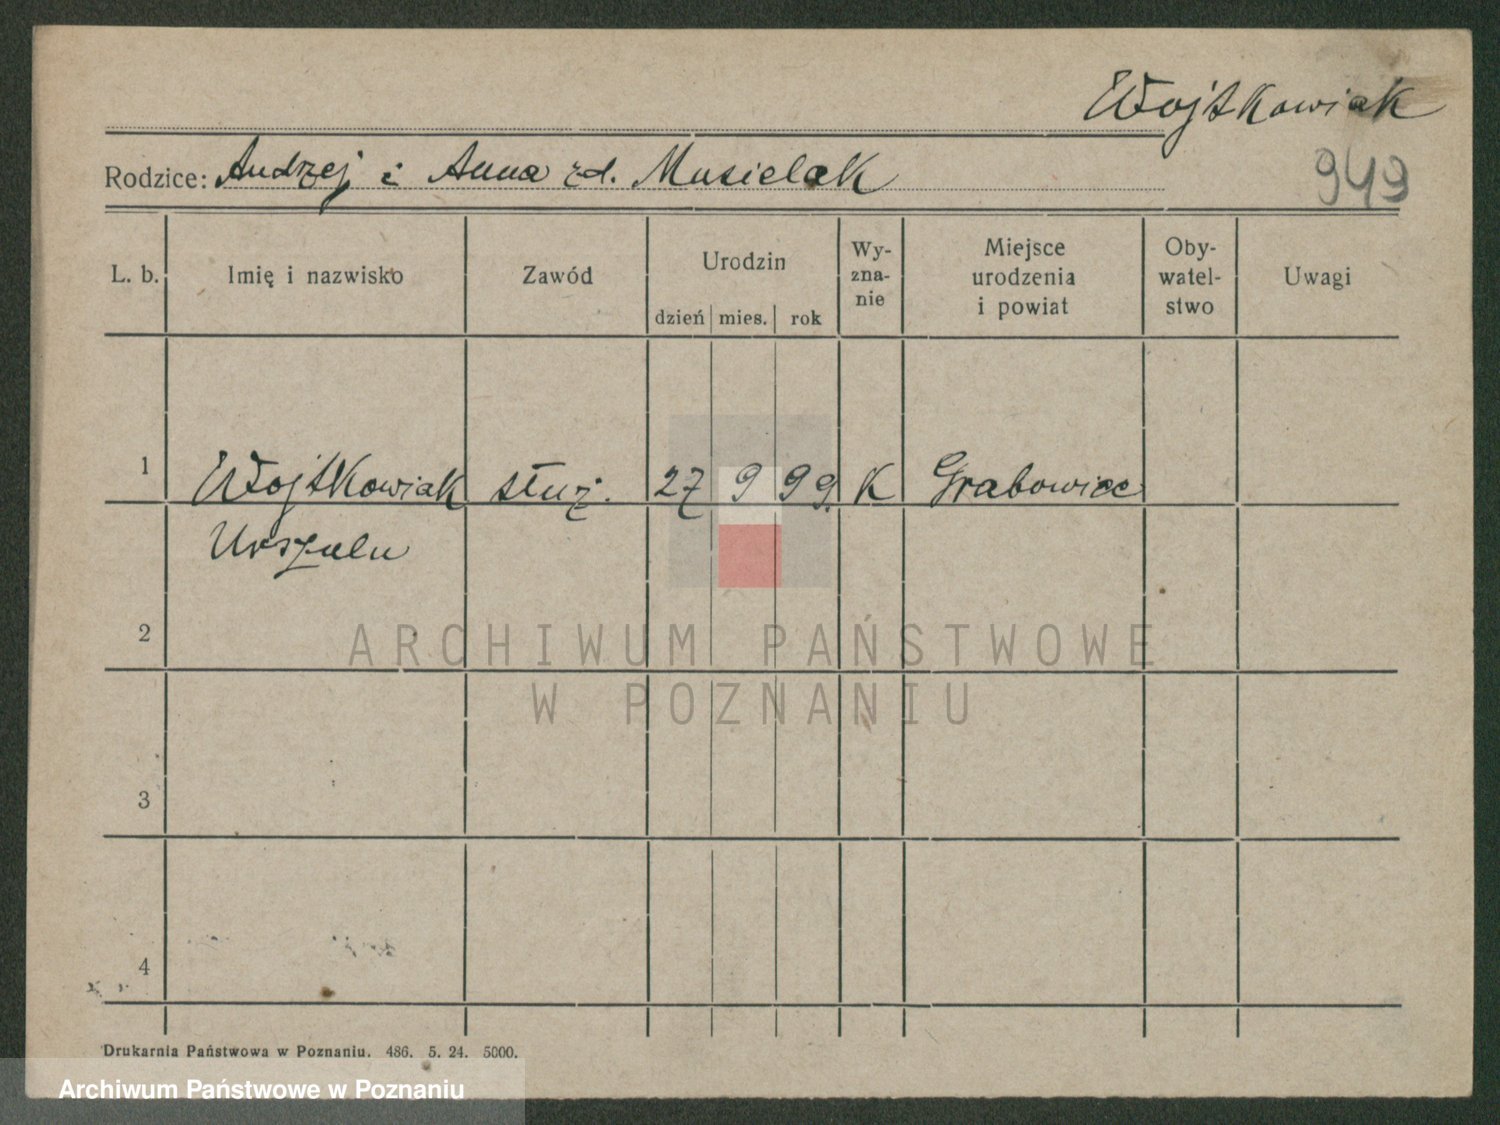 Wojtkowiak
949
Rodzice: Andrzej i Anna zd. Musielak
L. b. Imię i nazwisko Zawód Urodzin dzień mies. rok Wy-zna-nie Miejsce urodzenia i powiat Oby-watel-stwo Uwagi
1 Wojtkowiak służ. 27 9 99. K Grabowiec
Urszula
2
ARCHIWUM PAŃSTWOWE
W POZNANIU
3
4
Drukarnia Państwowa w Poznaniu. 486. 5. 24. 5000.
Archiwum Państwowe w Poznaniu